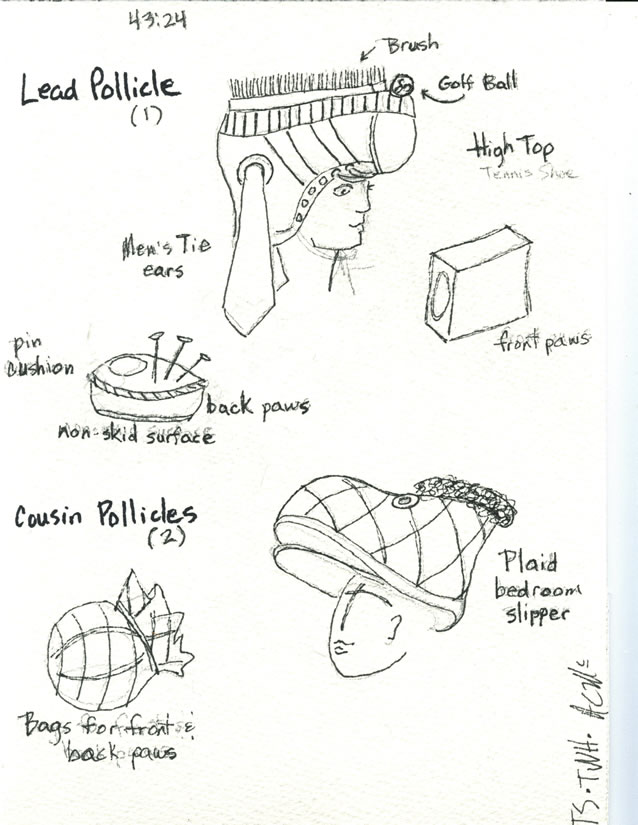 43:24
Brush
Lead Pollicle
(1)
Golf Ball
High Top
Tennis Shoe
Men's Tie
ears
front paws
pin
cushion
back paws
non-skid surface
Cousin Pollicles
(2)
Plaid
bedroom
slipper
Bags for front &
back paws